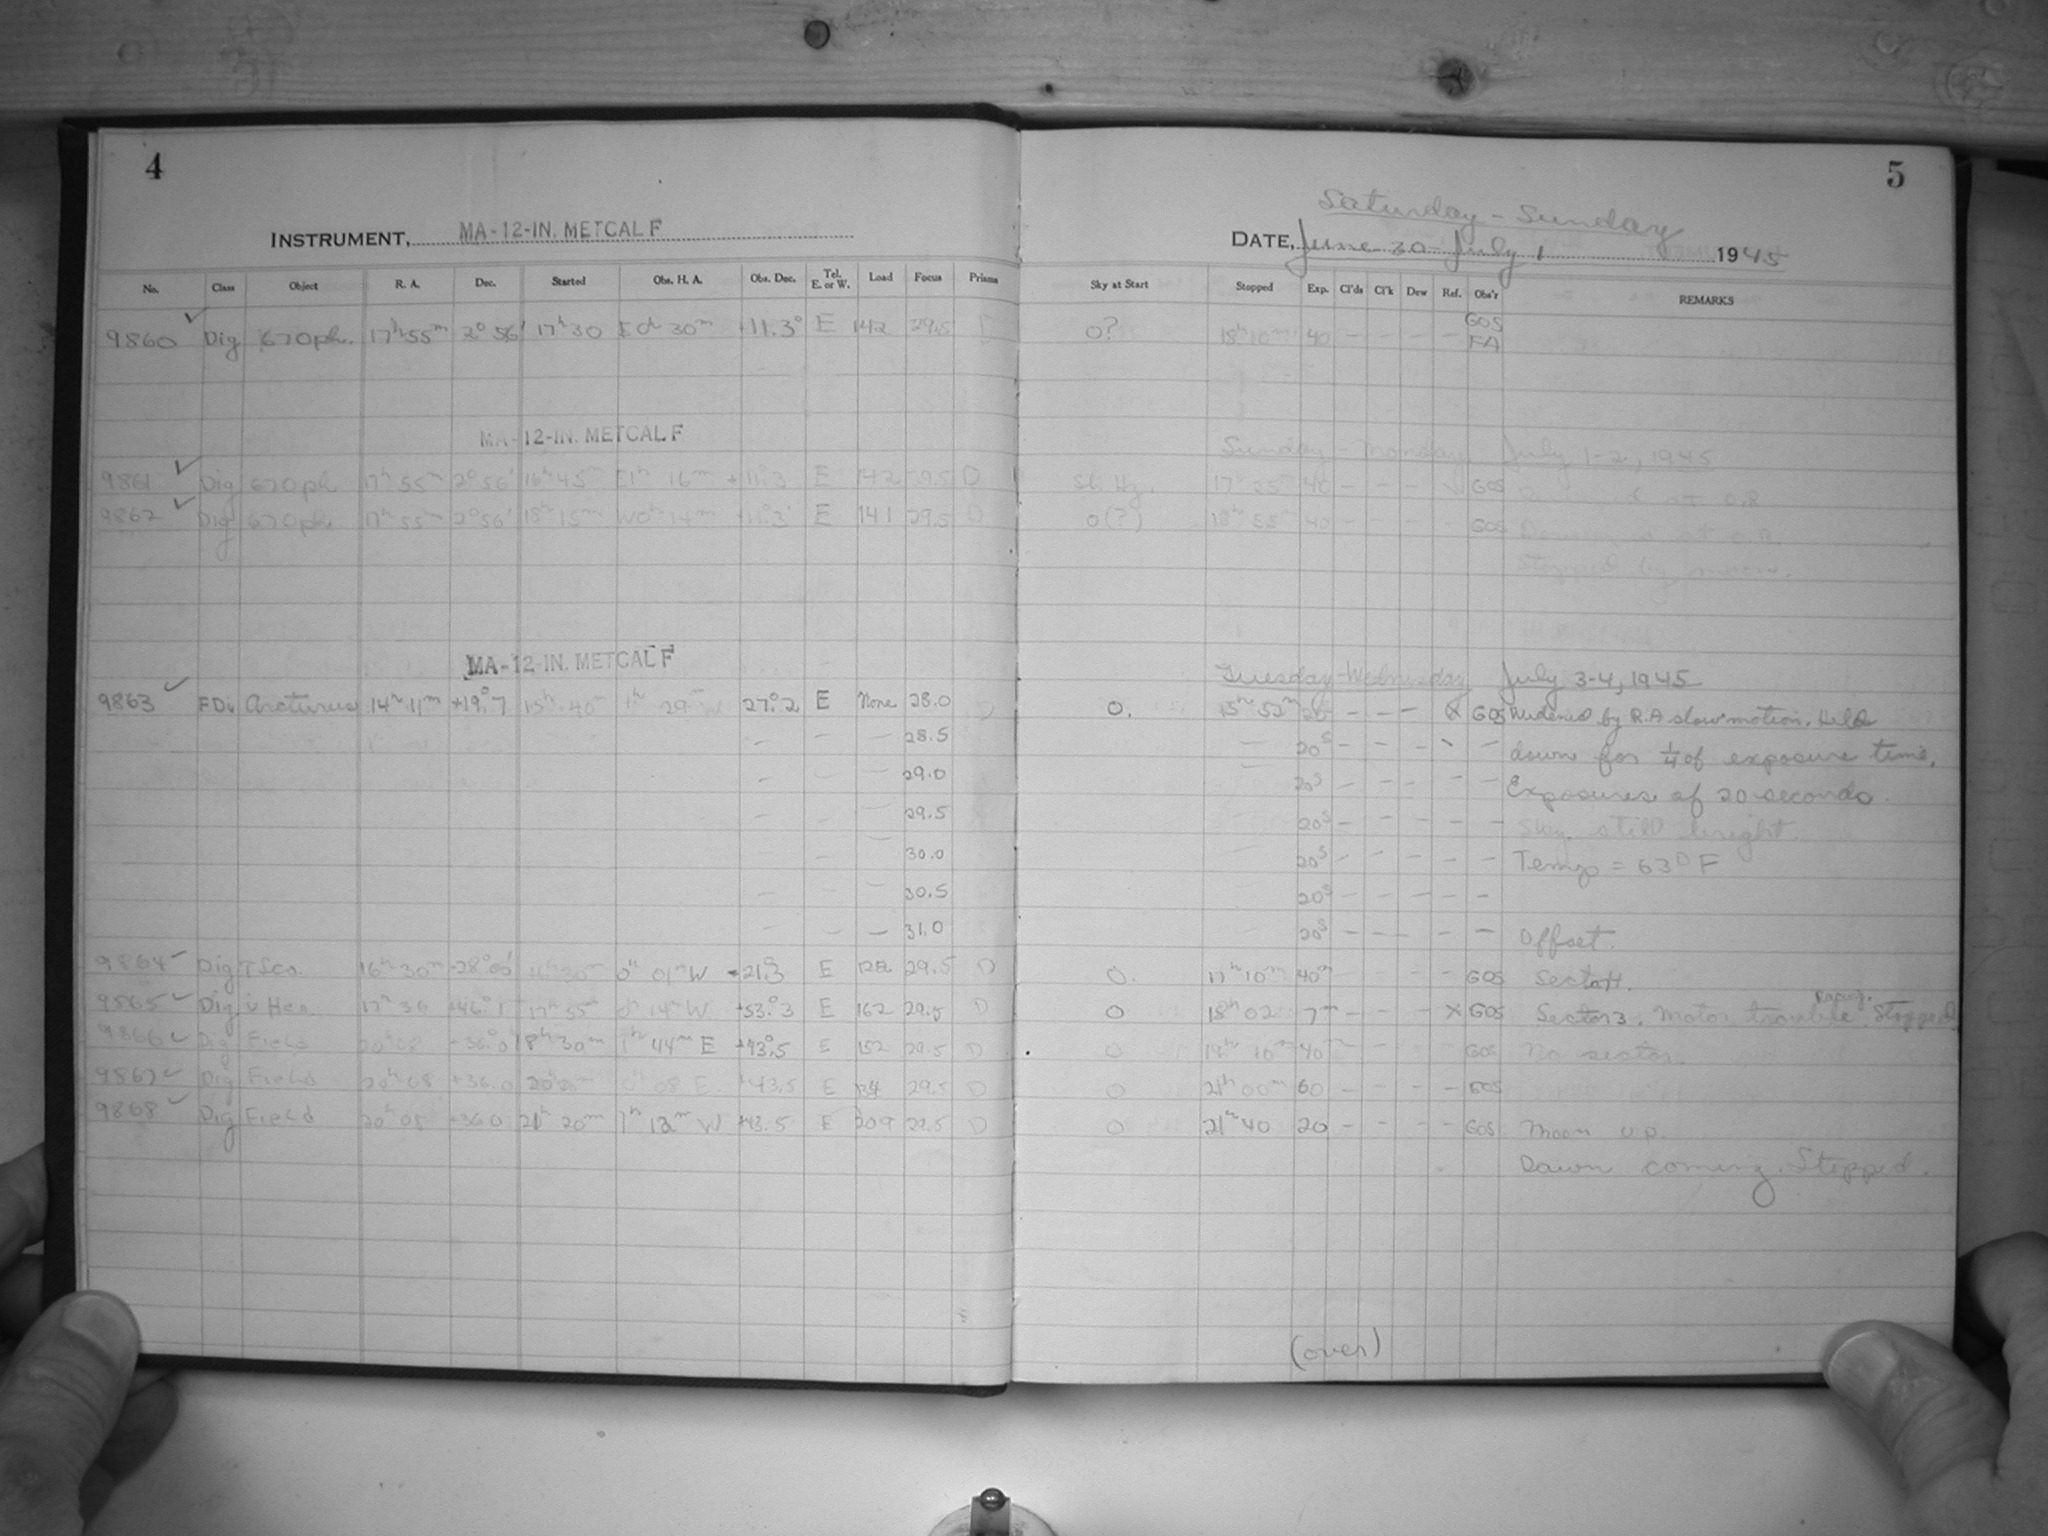 4
INSTRUMENT, MA-12-IN. METCALF
No. Class Object R. A. Dec. Started Obs. H. A. Obs. Dec. Tel. E. or W. Load Focus Prisms
9860 ✓ Dig 670ph. 17h 55m 2° 56' 17h 30 E 0h 30m +11.3° E 142 29.5
MA-12-IN. METCALF
9861 ✓ Dig 670ph 17h 55m 2° 56' 16h 45m E1h 16m +11°.3 E 142 29.5 D
9862 ✓ Dig 670ph 17h 55m 2° 56' 18h 15m W0h 14m +11°.3 E 141 29.5 D
MA-12-IN. METCALF
9863 ✓ FDi Arcturus 14h 11m +19°.7 15h 40m 1h 29m W 27°.2 E None 28.0 D
— — — 28.5
— — — 29.0
— — — 29.5
— — — 30.0
— — — 30.5
— — — 31.0
9864 ✓ Dig τ Sco. 16h 30m -28°00' 16h 30m 0h 01m W -21°.3 E 29.5 D
9865 ✓ Dig Her. 17h 36 +46°.1 17h 55m 0h 14m W +53°.3 E 162 29.5 D
9866 ✓ Dig Field +36°.0 18h 30m 1h 44m E +43°.5 E 152 29.5 D
9867 ✓ Dig Field 20h 08 +36.0 20h 00m 0h 08 E +43.5 E 134 29.5 D
9868 ✓ Dig Field 20h 08 +36.0 21h 20m 1h 12m W +43.5 E 209 29.5 D
5
Saturday - Sunday
DATE, June 30 - July 1 1945
Sky at Start Stopped Exp. Cl'ds Cl'k Dew Ref. Obs'r REMARKS
0? 18h 10m 40 — — — — GOS
FA
Sunday - Monday July 1-2, 1945
Sl. Hz. 17h 25m 40 — — — GOS at 0.8
0(?) 18h 55m 40 — — — — GOS at 0.8.
Stopped by moon.
Tuesday-Wednesday July 3-4, 1945
0. 15h 52m — — — GOS Widened by R.A slow motion. Held
— 20s — — — — — down for 1/4 of exposure time.
— 20s — — — — — Exposures of 20 seconds.
20s — — — — — Sky still bright.
20s — — — — — Temp = 63° F
20s — — — — —
20s — — — — — Offset.
0. 17h 10m 40m — — GOS Sector 4.
0 18h 02 7 — — — X GOS Sector 3. Motor trouble. Racing. Stopped
0 19h 10m 40 GOS No sector.
0 21h 00m 60 — — — — GOS
0 21h 40 20 — — — — GOS Moon up.
Dawn coming. Stopped.
(over)